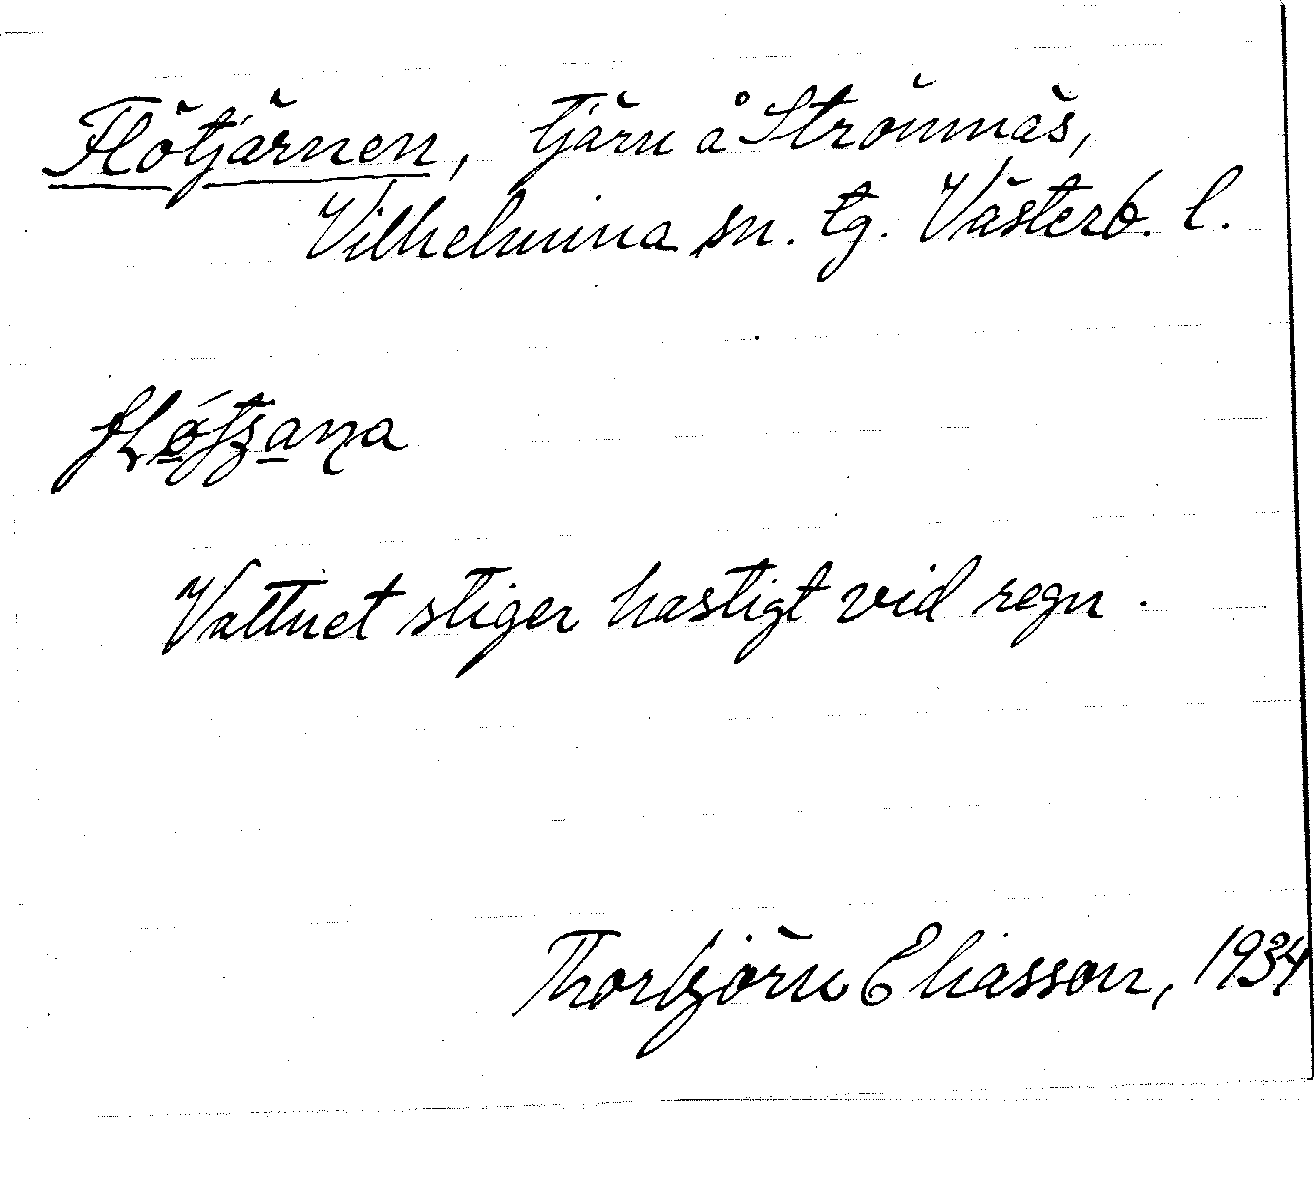 Flötjärnen, tjärn å Strömnäs,
Vilhelmina sn. tg. Västerb. l.
Vattnet stiger hastigt vid regn.
Thorbjörn Eliasson, 1934